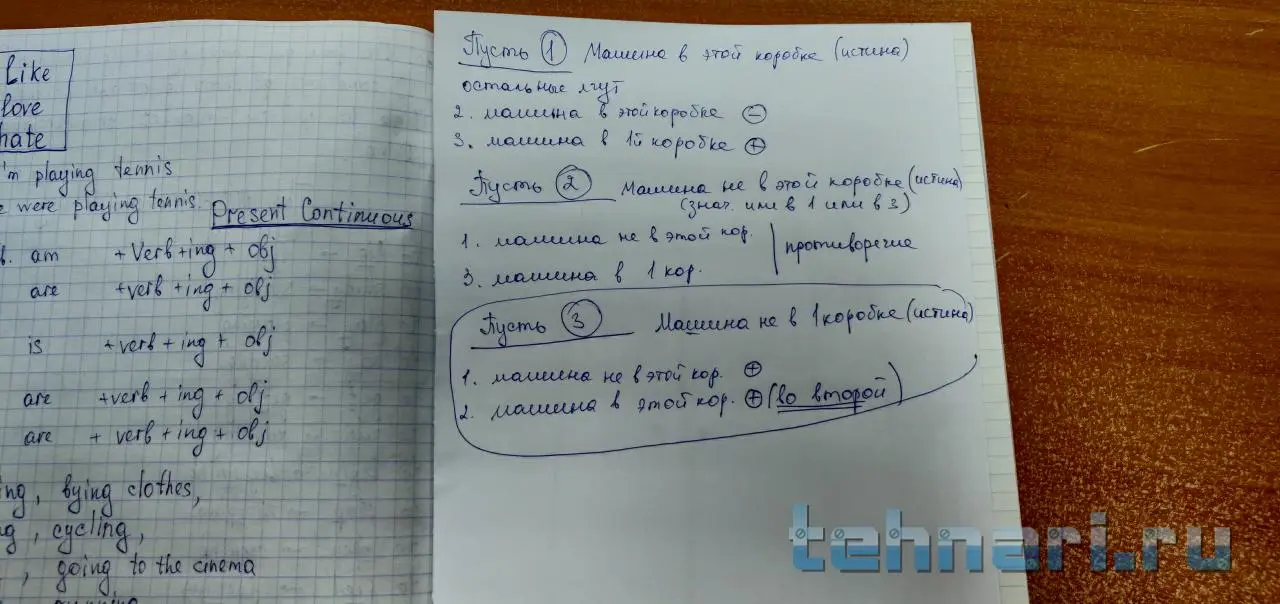 like
love
hate
'm playing tennis
e were playing tennis.
Present Continuous
am +Verb+ing + obj
are +verb+ing + obj
is +verb + ing + obj
are +verb + ing + obj
are + verb + ing + obj
ng, bying clothes,
ng, cycling,
, going to the cinema
Пусть 1 Машина в этой коробке (истина)
остальные лгут
2. машина в этой коробке ⊖
3. машина в 1й коробке ⊕
Пусть 2 Машина не в этой коробке (истина)
(знач. или в 1 или в 3)
1. машина не в этой кор.
3. машина в 1 кор.
противоречие
Пусть 3 Машина не в 1 коробке (истина)
1. машина не в этой кор. ⊕
2. машина в этой кор. ⊕ (во второй)
tehnari.ru